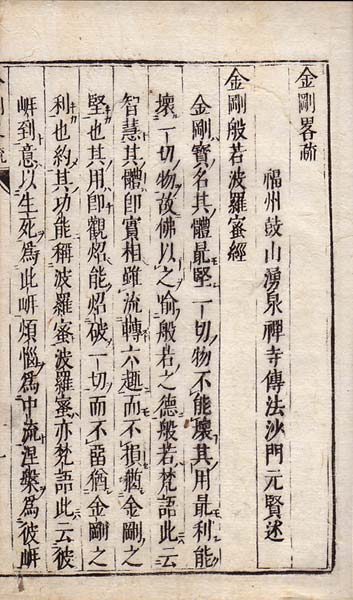 金剛畧疏
福州鼓山湧泉禪寺傳法沙門元賢述
金剛般若波羅蜜經
金剛寶名其體最堅一切物不能壞其用最利能
壞一切物故佛以之喻般若之德般若梵語此云
智慧其體卽實相雖流轉六趣而不損猶金剛之
堅也其用卽觀炤能炤破一切而不留猶金剛之
利也約其功能稱波羅蜜波羅蜜亦梵語此云彼
岍到意以生死爲此岍煩惱爲中流涅槃爲彼岍